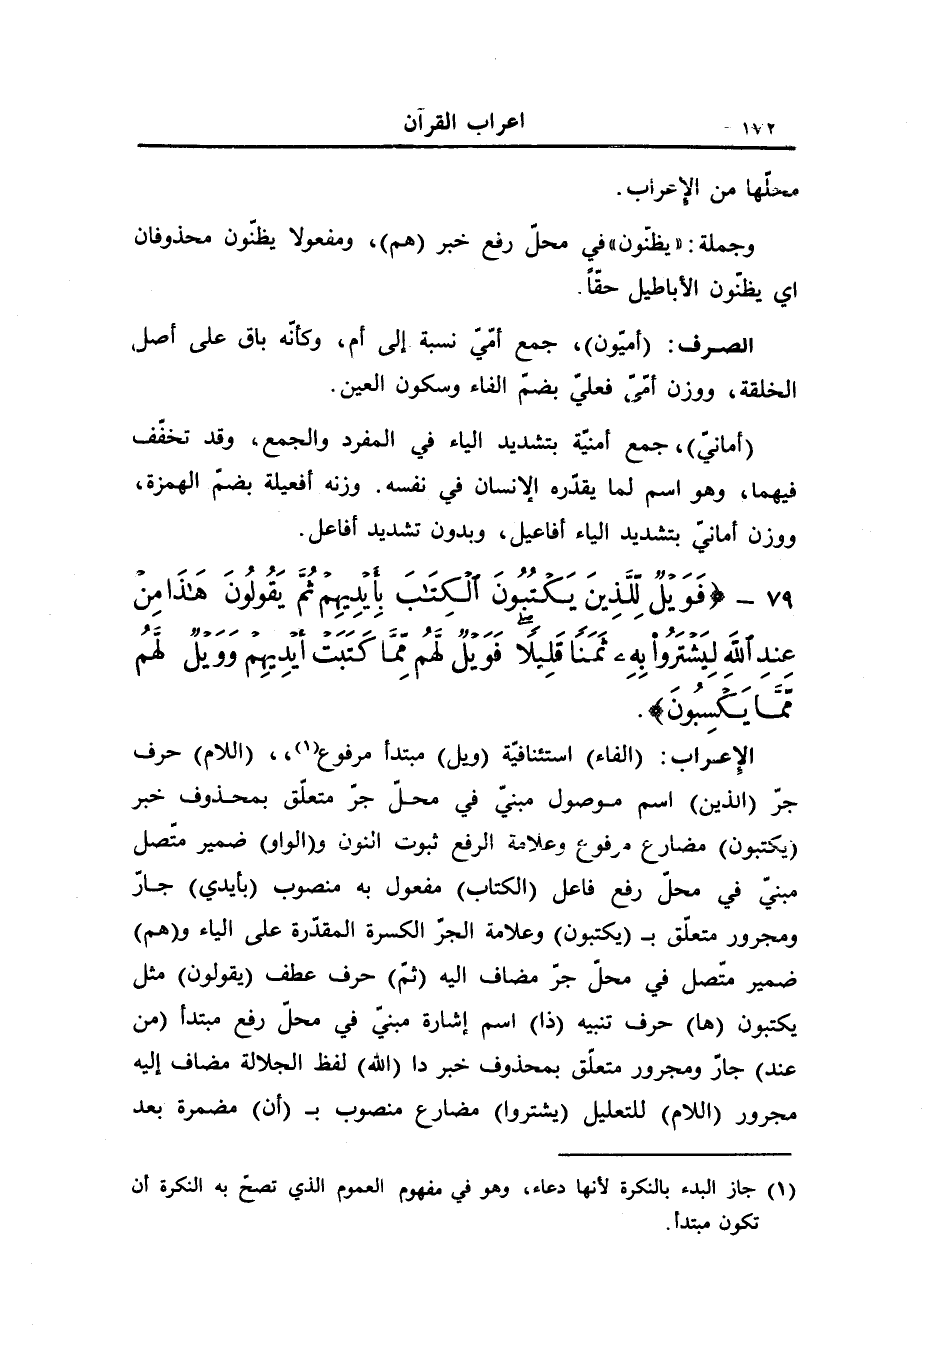 ١٧٢ - اعراب القرآن
محلّها من الإعراب.
وجملة: «يظنّون» في محلّ رفع خبر (هم)، ومفعولا يظنّون محذوفان
اي يظنّون الأباطيل حقّاً.
الصرف: (أميّون)، جمع أمّيّ نسبة إلى أم، وكأنّه باق على أصل
الخلقة، ووزن أمّيّ فعليّ بضمّ الفاء وسكون العين.
(أمانيّ)، جمع أمنيّة بتشديد الياء في المفرد والجمع، وقد تخفّف
فيهما، وهو اسم لما يقدّره الإنسان في نفسه. وزنه أفعيلة بضمّ الهمزة،
ووزن أمانيّ بتشديد الياء أفاعيل، وبدون تشديد أفاعل.
٧٩ - ﴿فَوَيْلٌ لِّلَّذِينَ يَكْتُبُونَ ٱلْكِتَٰبَ بِأَيْدِيهِمْ ثُمَّ يَقُولُونَ هَٰذَا مِنْ
عِندِ ٱللَّهِ لِيَشْتَرُوا۟ بِهِۦ ثَمَنًا قَلِيلًا ۖ فَوَيْلٌ لَّهُم مِّمَّا كَتَبَتْ أَيْدِيهِمْ وَوَيْلٌ لَّهُم
مِّمَّا يَكْسِبُونَ﴾.
الإعراب: (الفاء) استئنافيّة (ويل) مبتدأ مرفوع(١)،، (اللام) حرف
جرّ (الذين) اسم موصول مبنيّ في محلّ جرّ متعلّق بمحذوف خبر
(يكتبون) مضارع مرفوع وعلامة الرفع ثبوت النون و(الواو) ضمير متّصل
مبنيّ في محلّ رفع فاعل (الكتاب) مفعول به منصوب (بأيدي) جارّ
ومجرور متعلّق بـ (يكتبون) وعلامة الجرّ الكسرة المقدّرة على الياء و(هم)
ضمير متّصل في محلّ جرّ مضاف اليه (ثمّ) حرف عطف (يقولون) مثل
يكتبون (ها) حرف تنبيه (ذا) اسم إشارة مبنيّ في محلّ رفع مبتدأ (من
عند) جارّ ومجرور متعلّق بمحذوف خبر ذا (الله) لفظ الجلالة مضاف إليه
مجرور (اللام) للتعليل (يشتروا) مضارع منصوب بـ (أن) مضمرة بعد
(١) جاز البدء بالنكرة لأنها دعاء، وهو في مفهوم العموم الذي تصحّ به النكرة ان
تكون مبتدأ.